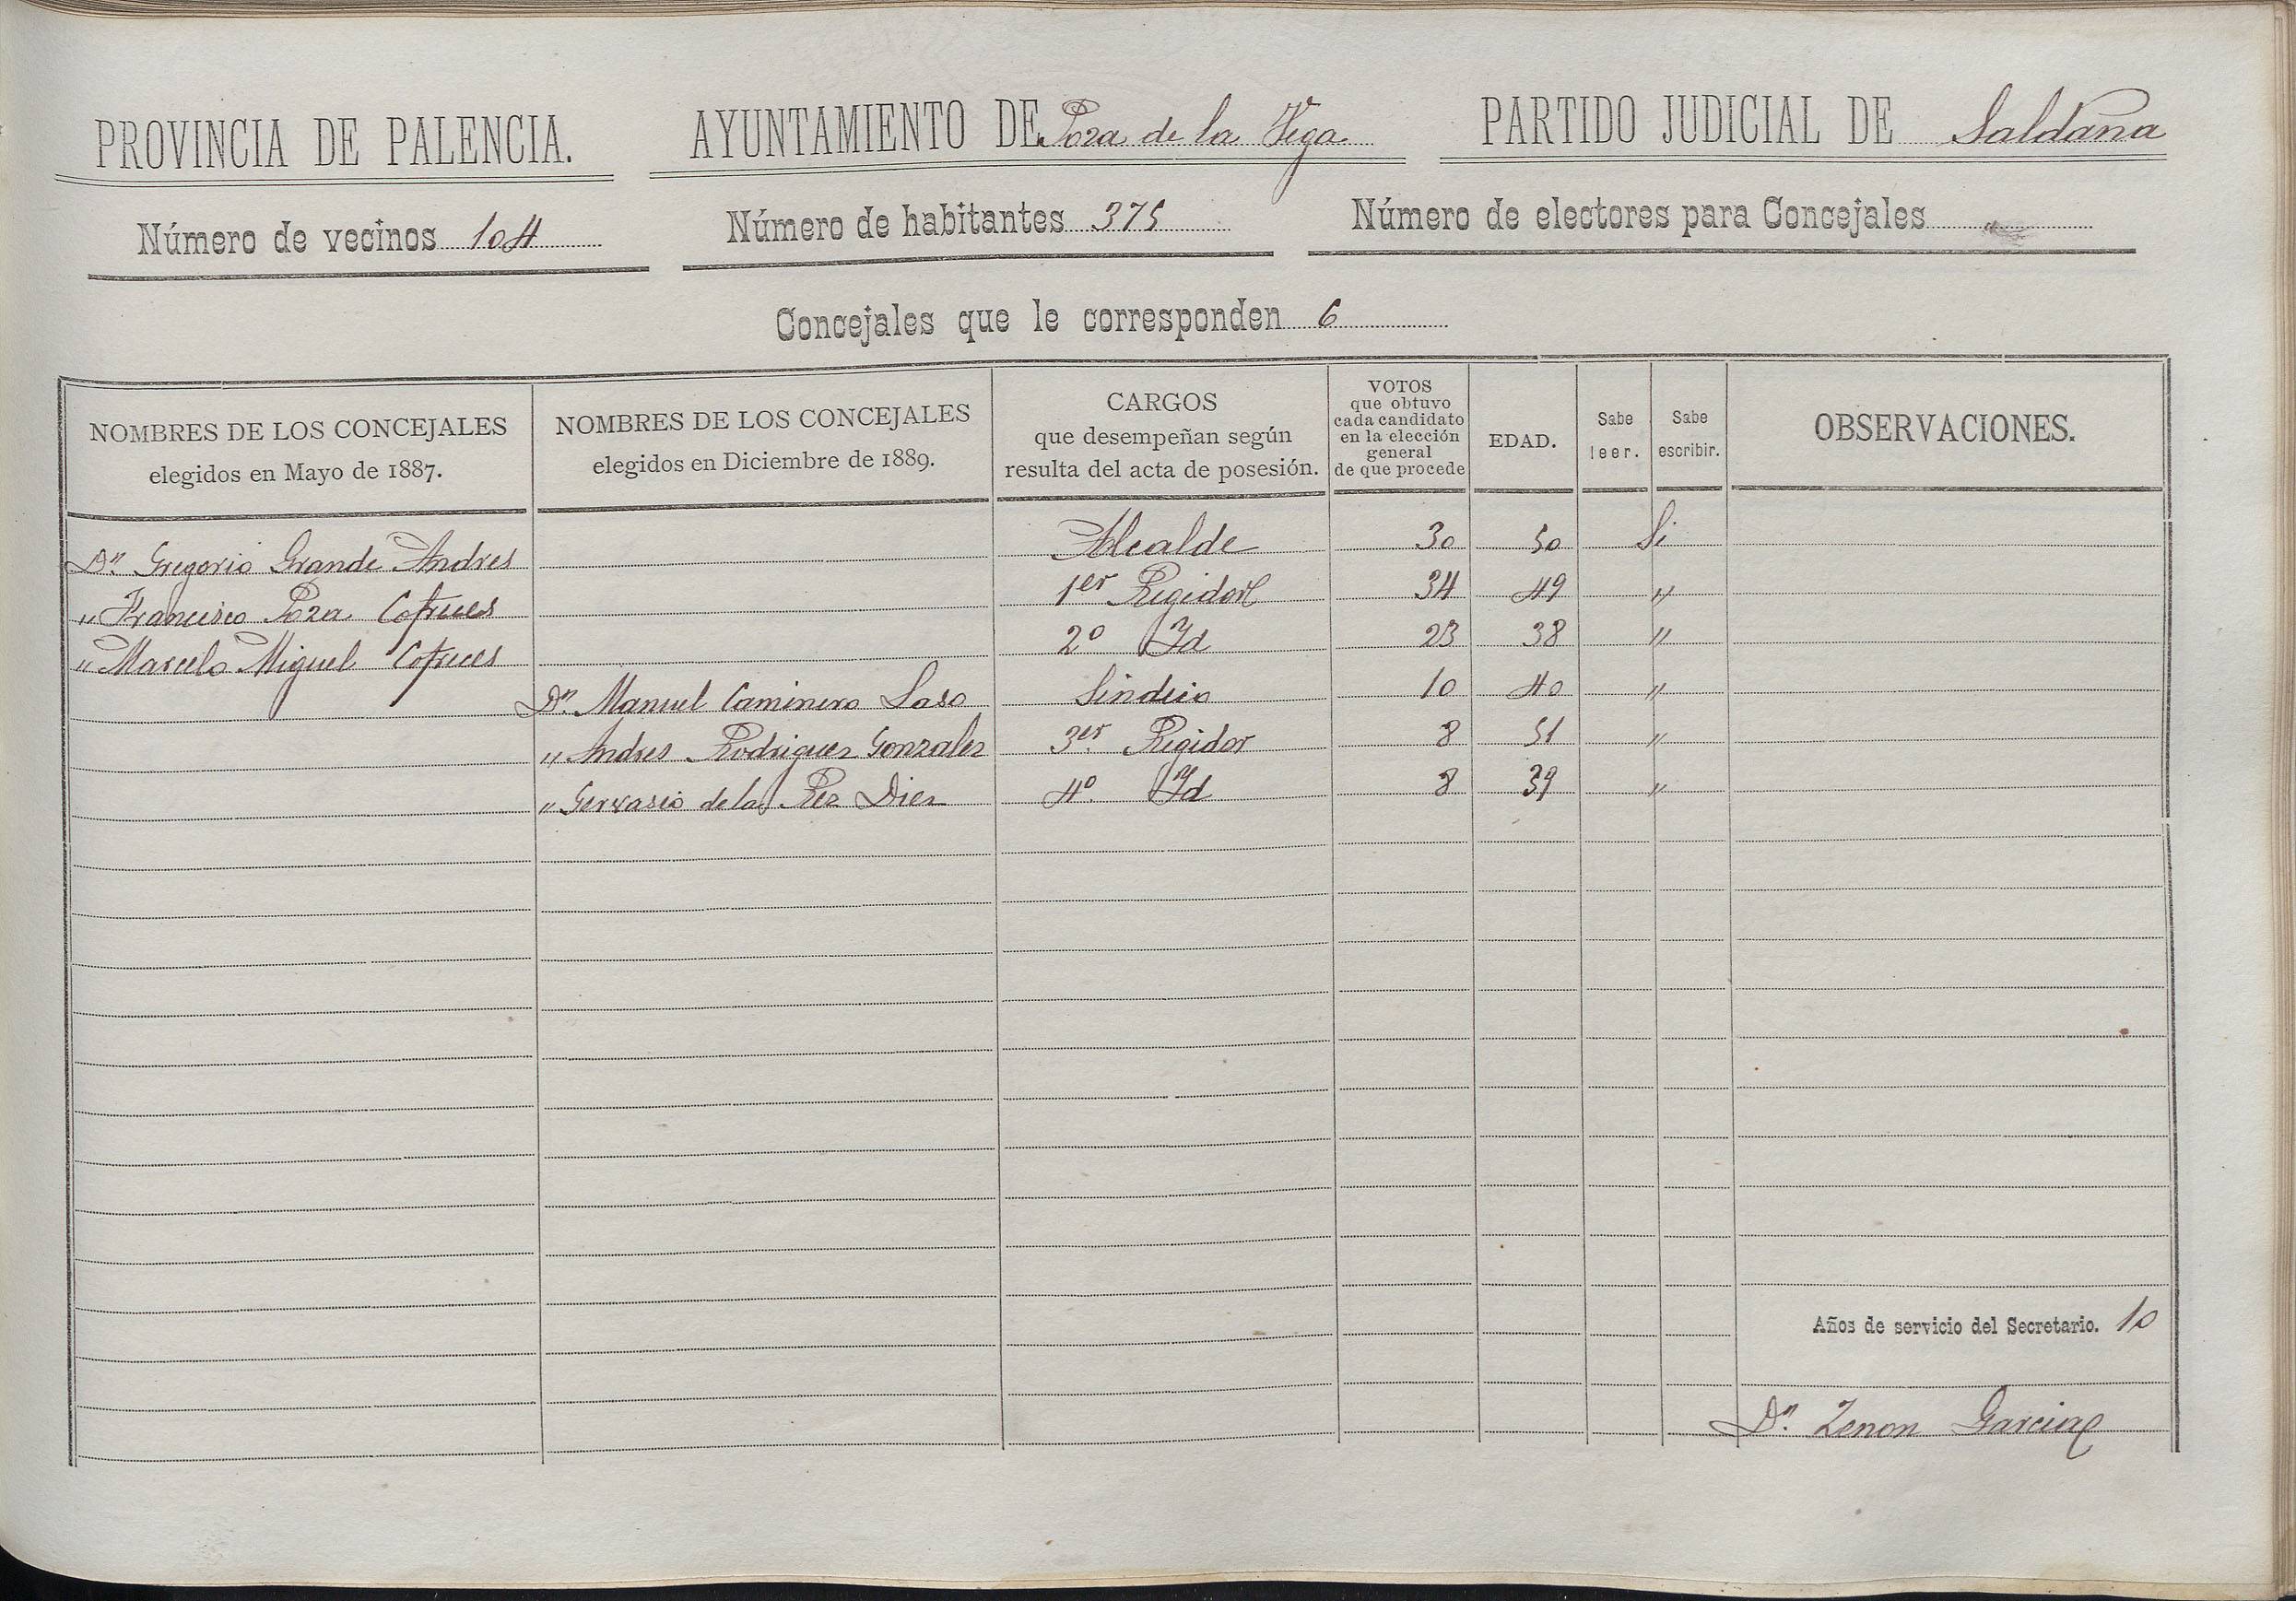 PROVINCIA DE PALENCIA. AYUNTAMIENTO DE Poza de la Vega PARTIDO JUDICIAL DE Saldaña
Número de vecinos 104 Número de habitantes 375 Número de electores para Concejales "
Concejales que le corresponden 6
NOMBRES DE LOS CONCEJALES
elegidos en Mayo de 1887.
NOMBRES DE LOS CONCEJALES
elegidos en Diciembre de 1889.
CARGOS
que desempeñan según
resulta del acta de posesión.
VOTOS
que obtuvo
cada candidato
en la elección
general
de que procede
EDAD.
Sabe
leer.
Sabe
escribir.
OBSERVACIONES.
Dn. Gregorio Grande Andres Alcalde 30 50 Si
" Francisco Poza Cofreces 1er Regidor 34 49 "
" Marcelo Miguel Cofreces 2º Id 23 38 "
Dn. Manuel Caminero Laso Sindico 10 40 "
" Andres Rodriguez Gonzalez 3er. Regidor 8 51 "
" Gervasio de la Pez Diez 4º. Id 8 39 "
Años de servicio del Secretario. 10
Dn. Zenon Garcia